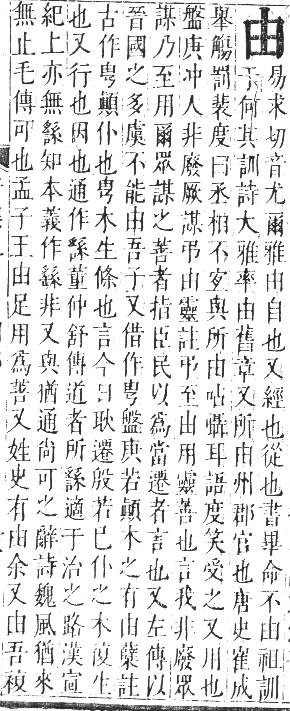 由
易求切音尤爾雅由自也又經也從也書畢命不由祖訓
于何其訓詩大雅率由舊章又所由州郡官也唐史崔咸
舉觴罰裴度曰丞相不宜與所由呫囁耳語度笑受之又用也
盤庚冲人非廢厥謀弔由靈註弔至由用靈善也言我非廢眾
謀乃至用爾眾謀之善者指臣民以爲當遷者言也又左傳以
晉國之多虞不能由吾子又借作甹盤庚若顛木之有由櫱註
古作甹顛仆也甹木生條也言今日耿遷殷若已仆之木復生
也又行也因也通作繇董仲舒傳道者所繇適于治之路漢宣
紀上亦無繇知本義作䌛非又與猶通尚可之辭詩魏風猶來
無止毛傳可也孟子王由足用爲善又姓史有由余又由吾複